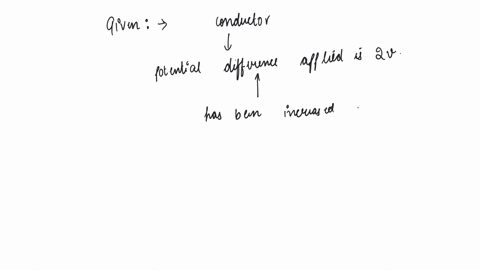 Given :→ conductor
↓
potential difference applied is 2v.
↑
has been increased .